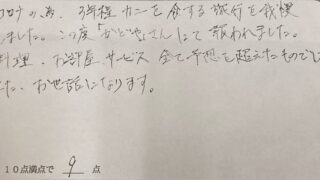 コロナの為、3年程カニを食する旅行を我慢
ました。この度「かどや」さんにて報われました。
料理・お部屋、サービス全て予想を超えたものでし
た、お世話になります。
10点満点で 9 点